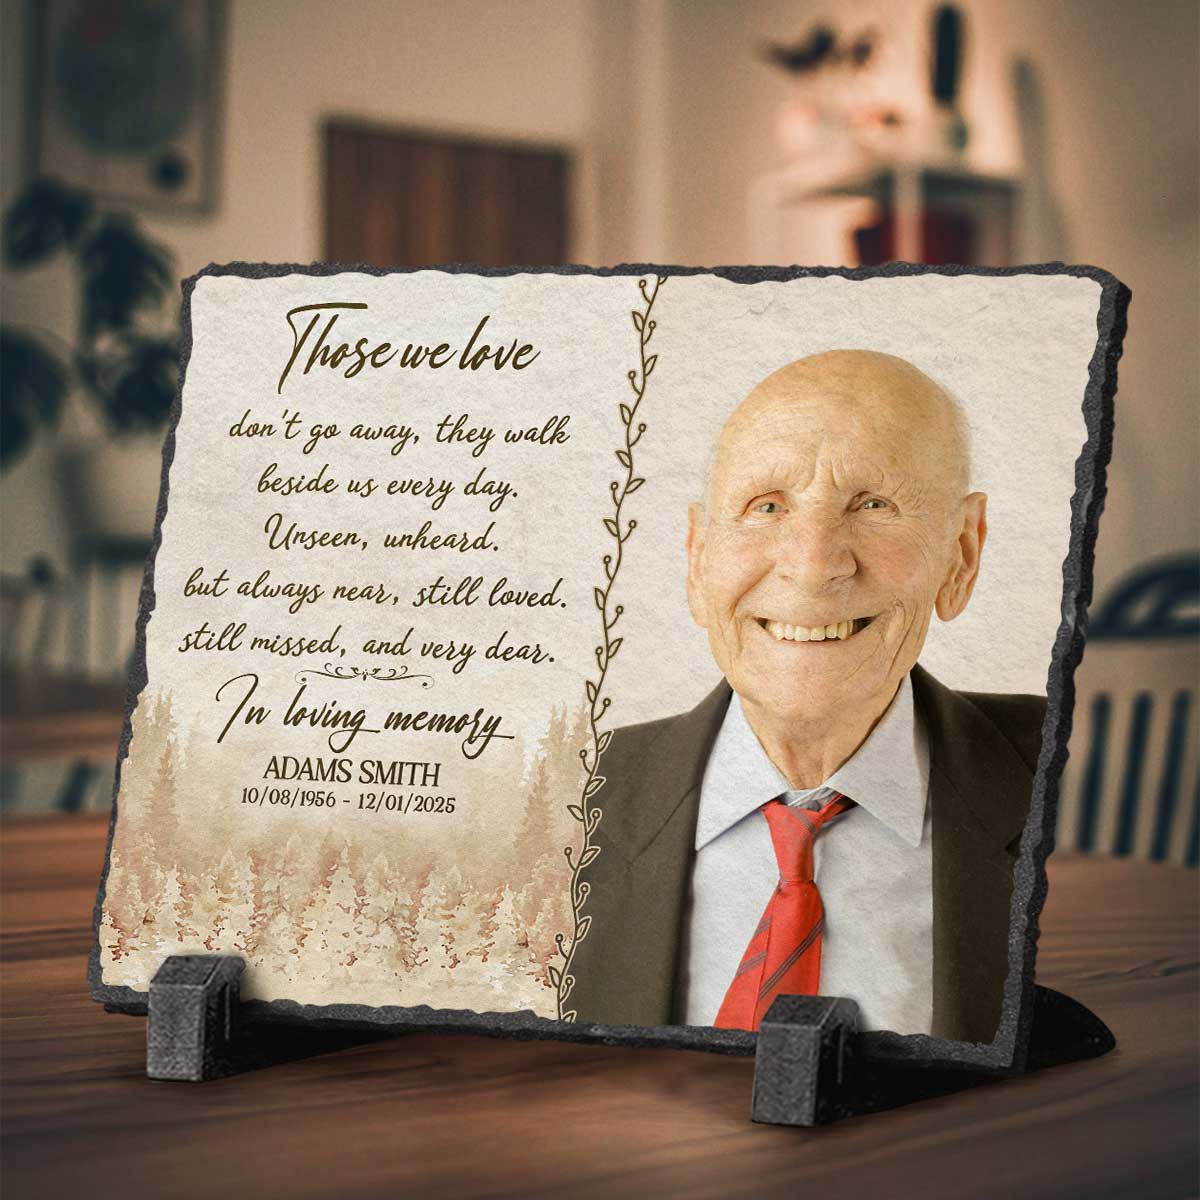 Those we love
don't go away, they walk
beside us every day.
Unseen, unheard.
but always near, still loved.
still missed, and very dear.
In loving memory
ADAMS SMITH
10/08/1956 - 12/01/2025